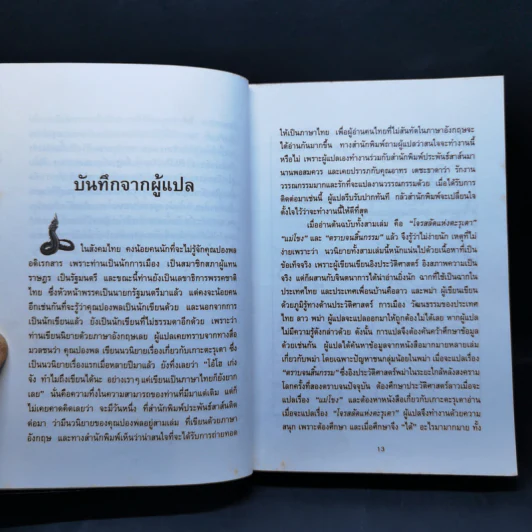 บันทึกจากผู้แปล
ในสังคมไทย คงน้อยคนนักที่จะไม่รู้จักคุณปองพล
อดิเรกสาร เพราะท่านเป็นนักการเมือง เป็นสมาชิกสภาผู้แทน
ราษฎร เป็นรัฐมนตรี และขณะนี้ท่านยังเป็นเลขาธิการพรรคชาติ
ไทย ซึ่งหัวหน้าพรรคเป็นนายกรัฐมนตรีมาแล้ว แต่คงจะน้อยคน
อีกเช่นกันที่จะรู้ว่าคุณปองพลเป็นนักเขียนด้วย และนอกจากการ
เป็นนักเขียนแล้ว ยังเป็นนักเขียนที่ไม่ธรรมดาอีกด้วย เพราะว่า
ท่านเขียนนวนิยายด้วยภาษาอังกฤษเลย ผู้แปลเคยทราบจากทางสื่อ
มวลชนว่า คุณปองพล เขียนนวนิยายเรื่องเกี่ยวกับเกาะตะรุเตา ซึ่ง
เป็นนวนิยายเรื่องแรกเมื่อหลายปีมาแล้ว ยังทึ่งเลยว่า "โอ้โฮ เก่ง
จัง ทำไมถึงเขียนได้นะ อย่างเราๆ แค่เขียนเป็นภาษาไทยก็ยังยาก
เลย" นั่นคือความทึ่งในความสามารถของท่านที่มีมาแต่เดิม แต่ก็
ไม่เคยคาดคิดเลยว่า จะมีวันหนึ่ง ที่สำนักพิมพ์ประพันธ์สาส์นติด
ต่อมา ว่ามีนวนิยายของคุณปองพลอยู่สามเล่ม ที่เขียนด้วยภาษา
อังกฤษ และทางสำนักพิมพ์เห็นว่าน่าสนใจที่จะได้รับการถ่ายทอด
ให้เป็นภาษาไทย เพื่อผู้อ่านคนไทยที่ไม่สันทัดในภาษาอังกฤษจะ
ได้อ่านกันมากขึ้น ทางสำนักพิมพ์ถามผู้แปลว่าสนใจจะทำงานนี้
หรือไม่ เพราะผู้แปลเองทำงานร่วมกับสำนักพิมพ์ประพันธ์สาส์นมา
นานพอสมควร และเคยปรารภกับคุณอาทร เตชะธาดาว่า รักงาน
วรรณกรรมมากและรักที่จะแปลงานวรรณกรรมด้วย เมื่อได้รับการ
ติดต่อมาเช่นนี้ ผู้แปลรีบรับปากทันที กลัวสำนักพิมพ์จะเปลี่ยนใจ
ตั้งใจไว้ว่าจะทำงานนี้ให้ดีที่สุด
เมื่ออ่านต้นฉบับทั้งสามเล่ม คือ "โจรสลัดแห่งตะรุเตา"
"แม่โขง" และ "คราบจนสิ้นกรรม" แล้ว จึงรู้ว่าไม่ง่ายนัก เหตุที่ไม่
ง่ายเพราะว่า นวนิยายทั้งสามเล่มนี้หนักแน่นไปด้วยเนื้อหาที่เป็น
ข้อเท็จจริง เพราะผู้เขียนเขียนอิงประวัติศาสตร์ อิงสภาพความเป็น
จริง แต่ก็ผสานกับจินตนาการได้น่าอ่านยิ่งนัก ฉากที่ใช้เป็นฉากใน
ประเทศไทย และประเทศเพื่อนบ้านคือลาว และพม่า ผู้เขียนเขียน
ด้วยภูมิรู้ทางด้านประวัติศาสตร์ การเมือง วัฒนธรรมของประเทศ
ไทย ลาว พม่า ผู้แปลจะแปลออกมาให้ถูกต้องไม่ได้เลย หากผู้แปล
ไม่มีความรู้ดังกล่าวด้วย ดังนั้น การแปลจึงต้องค้นคว้าศึกษาข้อมูล
ด้วยเช่นกัน ผู้แปลได้ค้นหาข้อมูลจากหนังสือมากมายหลายเล่ม
เกี่ยวกับพม่า โดยเฉพาะปัญหาชนกลุ่มน้อยในพม่า เมื่อแปลเรื่อง
"คราบจนสิ้นกรรม" ซึ่งอิงประวัติศาสตร์พม่าในระยะใกล้หลังสงคราม
โลกครั้งที่สองตราบจนปัจจุบัน ต้องศึกษาประวัติศาสตร์ลาวเมื่อจะ
แปลเรื่อง "แม่โขง" และต้องหาหนังสือเกี่ยวกับเกาะตะรุเตามาอ่าน
เมื่อจะแปลเรื่อง "โจรสลัดแห่งตะรุเตา" ผู้แปลทำงานด้วยความ
สนุก เพราะต้องศึกษา และเมื่อศึกษาจึง "ได้" อะไรมามากมาย ทั้ง
13